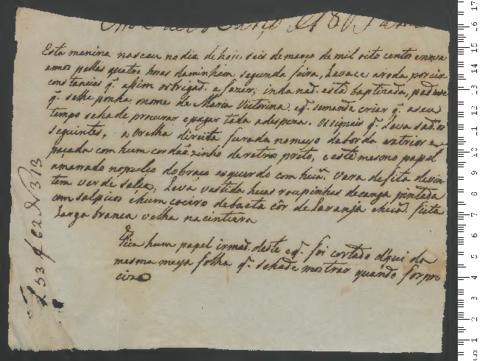 Esta menina nasceu no dia de hoje, seis de março de mil oito centos e nove
annos pellas quatro horas da minham, segunda feira, Levace a roda por cir
constancias q. assim obrigaõ a fazer; inda naõ está baptizada, pede-se
q. se lhe ponha nome de Maria Victorina e q. se mande criar q. a seu
tempo se ha de procurar e pagar toda a despeza. Os signais q. Leva saõ os
seguintes, a Orelha direita furada no meyo da borda exterior e
paçada com hum cordaõzinho de retroz preto, e este mesmo papel
amarrado no pulço do braço esquerdo com huã vara de fita de
tem verde Leva vestida huas roupinhas de ganga pintada
com salpicos e hum coeiro de baeta côr de laranja e huã fita
Larga branca velha na cintura
Fica hum papel irmaõ deste e q. foi cortado da
mesma meya folha q. se ha de mostrar quando for per
cizo